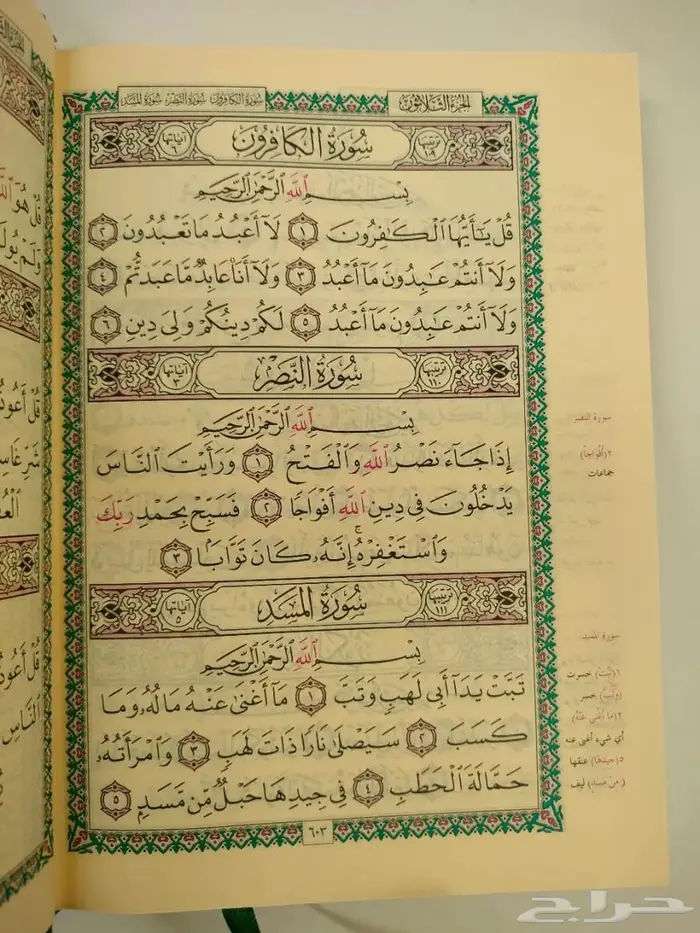 الجزء الثلاثون
سورة الكافرون سورة النصر سورة المسد
ترتيبها ١٠٩ سُورَةُ الكَافِرُونَ آياتها ٦
بِسْمِ اللَّهِ الرَّحْمَٰنِ الرَّحِيمِ
قُلْ يَـٰٓأَيُّهَا ٱلْكَـٰفِرُونَ ١ لَآ أَعْبُدُ مَا تَعْبُدُونَ ٢
وَلَآ أَنتُمْ عَـٰبِدُونَ مَآ أَعْبُدُ ٣ وَلَآ أَنَا۠ عَابِدٌ مَّا عَبَدتُّمْ ٤
وَلَآ أَنتُمْ عَـٰبِدُونَ مَآ أَعْبُدُ ٥ لَكُمْ دِينُكُمْ وَلِىَ دِينِ ٦
ترتيبها ١١٠ سُورَةُ النَّصْرِ آياتها ٣
بِسْمِ اللَّهِ الرَّحْمَٰنِ الرَّحِيمِ
إِذَا جَآءَ نَصْرُ ٱللَّهِ وَٱلْفَتْحُ ١ وَرَأَيْتَ ٱلنَّاسَ
يَدْخُلُونَ فِى دِينِ ٱللَّهِ أَفْوَاجًا ٢ فَسَبِّحْ بِحَمْدِ رَبِّكَ
وَٱسْتَغْفِرْهُ ۚ إِنَّهُۥ كَانَ تَوَّابًۢا ٣
ترتيبها ١١١ سُورَةُ المَسَد آياتها ٥
بِسْمِ اللَّهِ الرَّحْمَٰنِ الرَّحِيمِ
تَبَّتْ يَدَآ أَبِى لَهَبٍ وَتَبَّ ١ مَآ أَغْنَىٰ عَنْهُ مَالُهُۥ وَمَا
كَسَبَ ٢ سَيَصْلَىٰ نَارًا ذَاتَ لَهَبٍ ٣ وَٱمْرَأَتُهُۥ
حَمَّالَةَ ٱلْحَطَبِ ٤ فِى جِيدِهَا حَبْلٌ مِّن مَّسَدٍۭ ٥
٦٠٣
سورة النصر
٢(أفْوَاجاً)
جماعات
سورة المسد
١(تَبَّتْ) خسرت
(وَتَبَّ) خسر
٢(ما أغنى عَنْهُ)
أي شيء أغنى عنه
٥(جِيدِهَا) عنقها
(مِن مَّسَدٍ) ليف
قُلْ هُوَ
وَلَمْ يُولَ
قُلْ أَعُوذُ
شَرِّ غَاسِ
قُلْ أَعُوذُ
ٱلنَّاسِ
حراج